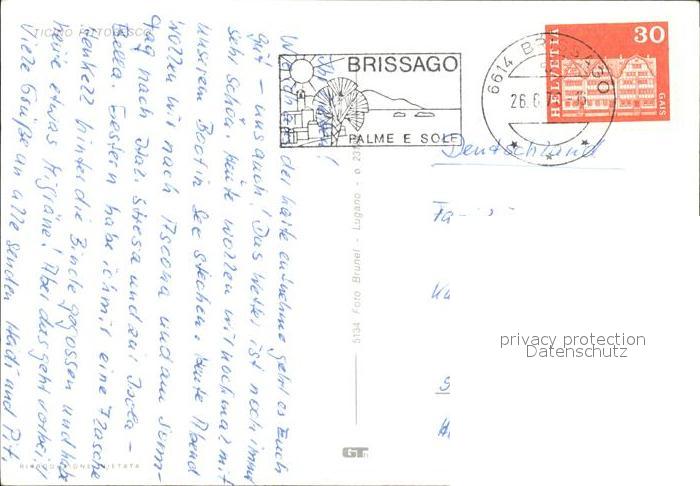 TICINO PITTORESCO
Ihr Lieben!
Wie ich der Karte entnehme geht es Euch
gut – uns auch! Das Wetter ist noch immer
sehr schön. Heute wollen wir nochmal mit
unserem Boot in See stechen. Heute Abend
wollen wir nach Ascona und am Sams-
tag nach Stresa und zur Isola –
Bella. Gestern habe ich mir eine Flasche
hinter die Binde gegossen und habe
heute etwas Migräne! Aber das geht vorbei!
Viele Grüße an alle senden Heidi und
5134 Foto Brunel - Lugano -
GT
BRISSAGO
PALME E SOLE
6614 BRISSAGO
26.6.7
HELVETIA
30
GAIS
Deutschland
Fa
S
privacy protection
Datenschutz